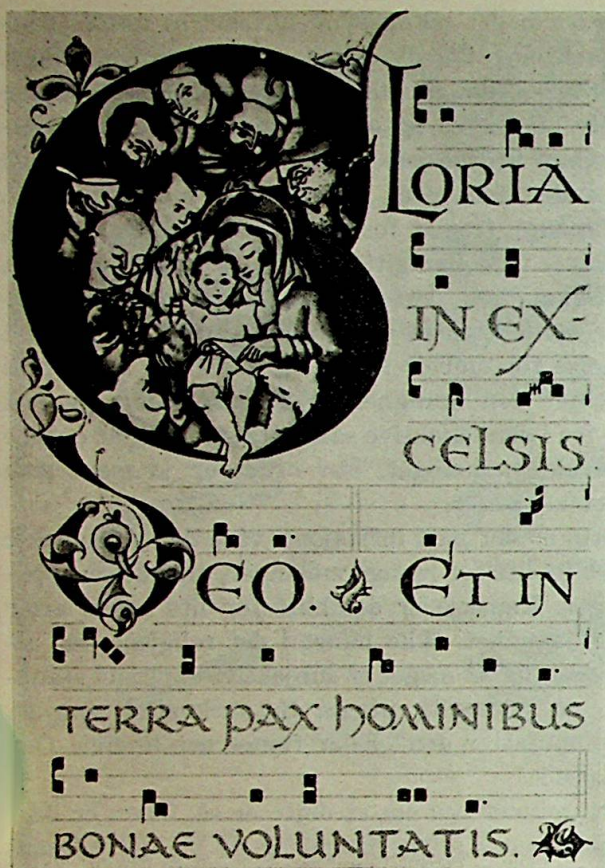 GLORIA
IN EX-
CELSIS
DEO. ET IN
TERRA PAX hOMINIBUS
BONAE VOLUNTATIS.